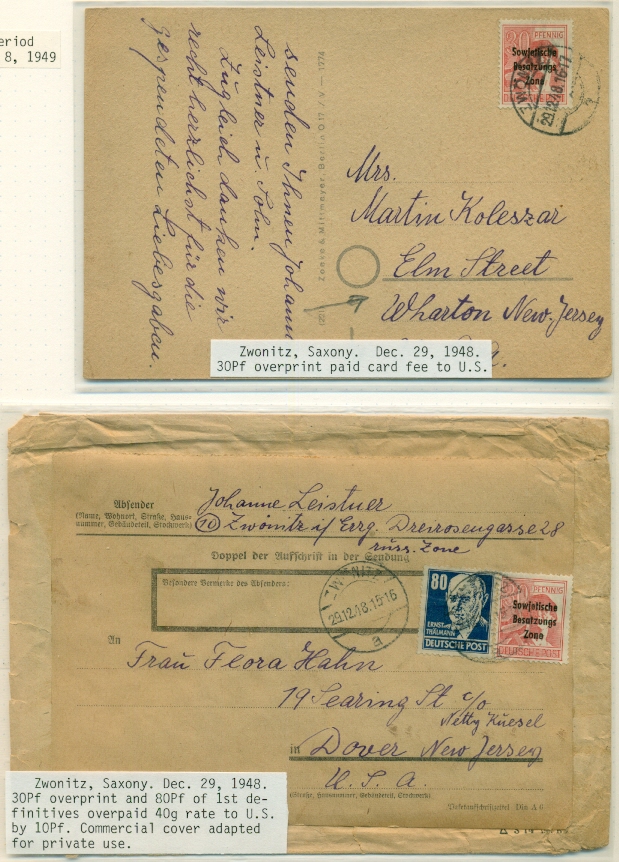 eriod
8, 1949
30 PFENNIG
Sowjetische
Besatzungs
Zone
29.12.48.16-17
senden Ihnen Johanne
Leistner u. Sohn.
Zugleich danken wir
recht herzlichst für die
gespendeten Liebesgaben.
Mrs.
Martin Koleszar
Elm Street
Wharton New. Jersey
Zwonitz, Saxony. Dec. 29, 1948.
30Pf overprint paid card fee to U.S.
Absender
(Name, Wohnort, Straße, Haus-
nummer, Gebäudeteil, Stockwerk)
Johanne Leistner
(10) Zwönitz i/ Errg. Dreirosengasse 28
russ. Zone
Doppel der Aufschrift in der Sendung
Besondere Vermerke des Absenders:
ZWÖNITZ
29.12.48.15-16
80
ERNST THÄLMANN
DEUTSCHE POST
Sowjetische
Besatzungs
Zone
DEUTSCHE POST
An
Frau Flora Hahn
19 Searing St c/o
Netty Kuesel
in Dover New Jersey
U. S. A.
(Straße, Hausnummer, Gebäudeteil, Stockwerk)
Zwonitz, Saxony. Dec. 29, 1948.
30Pf overprint and 80Pf of 1st de-
finitives overpaid 40g rate to U.S.
by 10Pf. Commercial cover adapted
for private use.